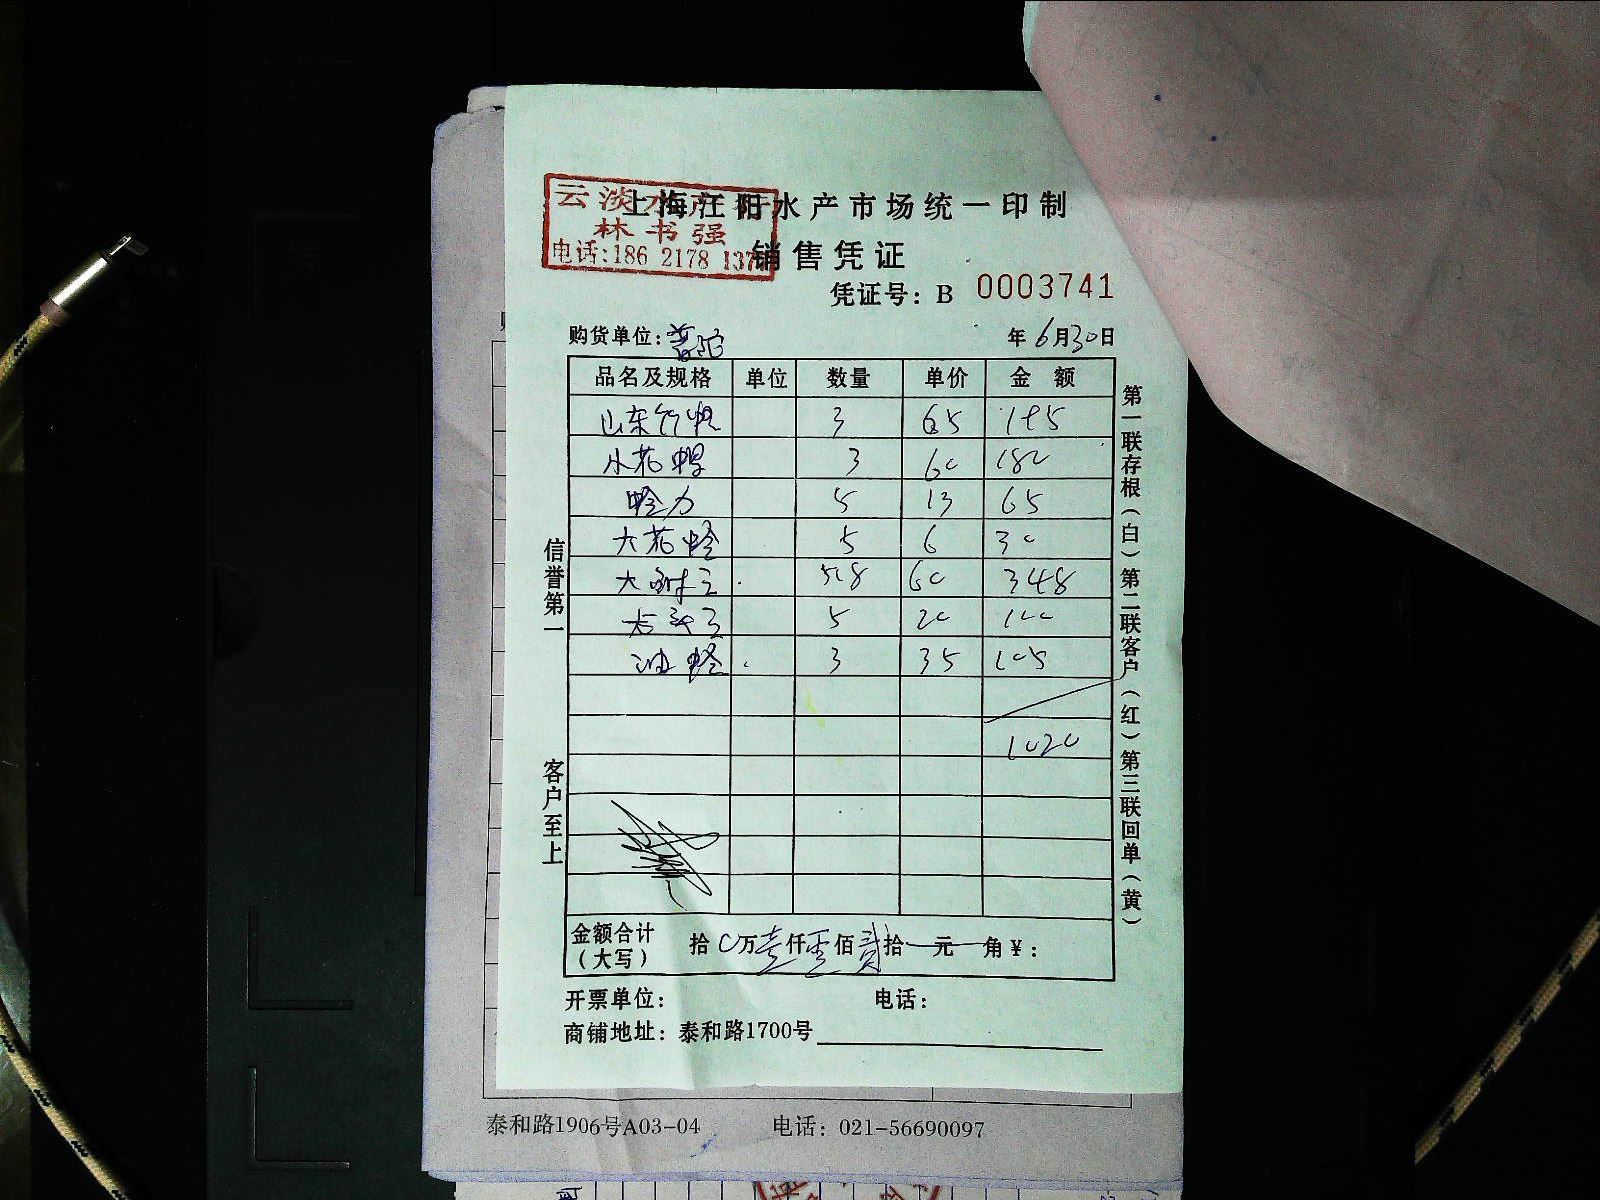 云淡水产行
林书强
电话:186 2178 137
上海江阳水产市场统一印制
销售凭证
凭证号: B 0003741
购货单位: 普陀
年 6月30日
品名及规格 单位 数量 单价 金额
山东竹蛏 3 65 195
小花甲 3 60 180
蛤力 5 13 65
大花蛤 5 6 30
大 5.8 60 348
5 20 100
油蛤 3 35 105
1020
金额合计(大写) 拾0万壹仟零佰贰拾一元 角¥:
开票单位: 电话:
商铺地址: 泰和路1700号
信誉第一 客户至上
第一联存根(白)第二联客户(红)第三联回单(黄)
泰和路1906号A03-04 电话: 021-56690097